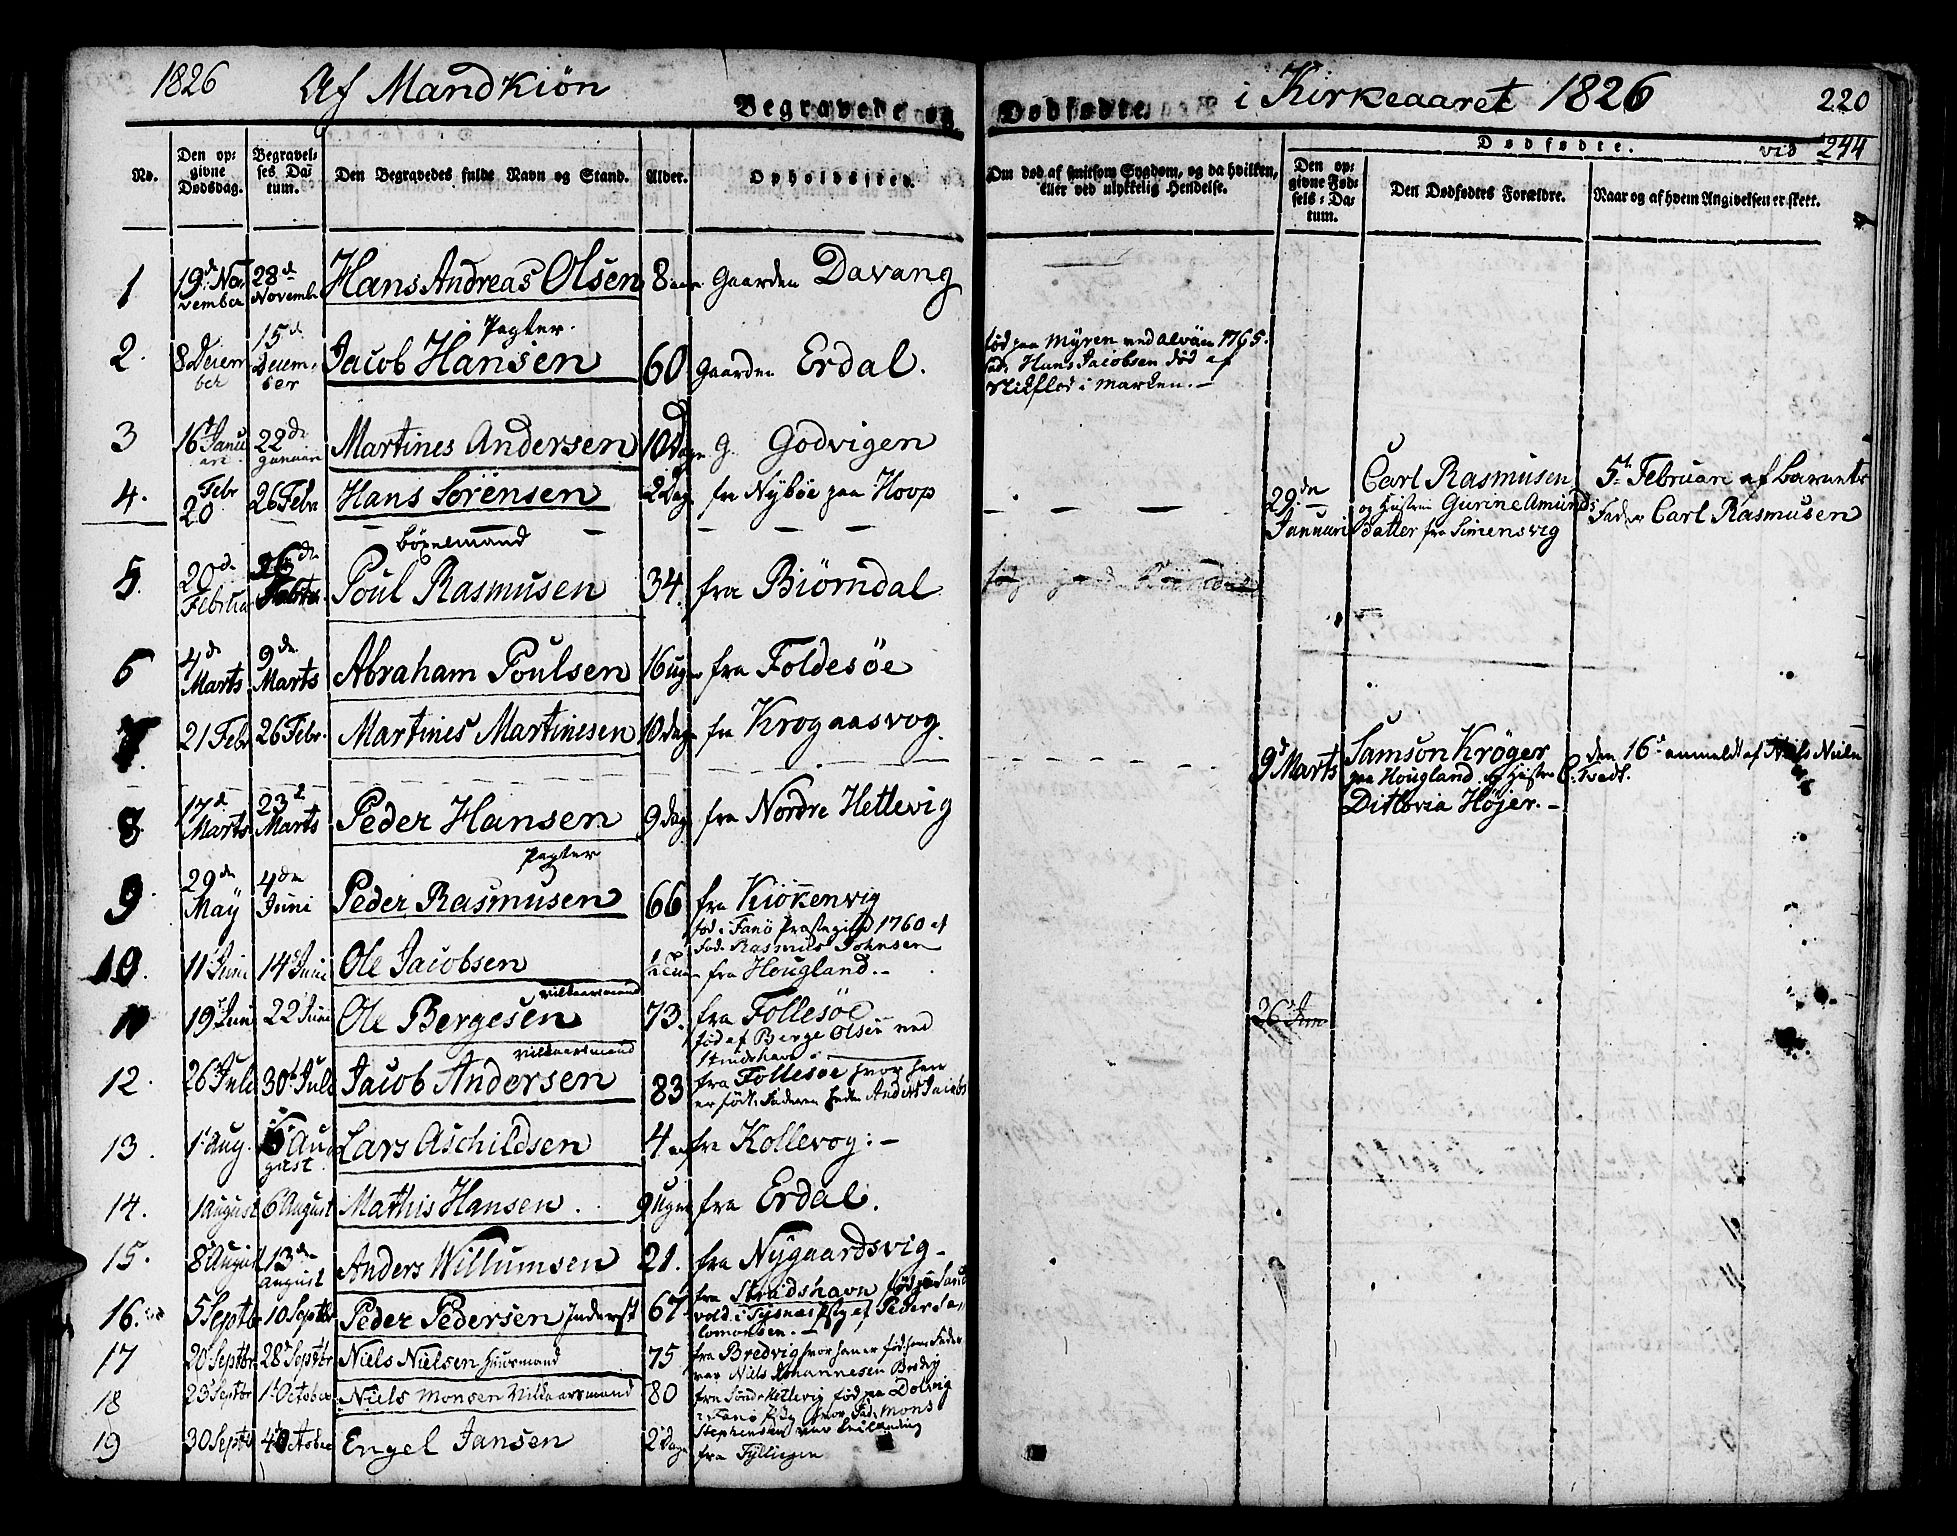 1826 Af Mandkiön Begravede og Dødfødte i Kirkeaaret 1826 220
Dødfødte. vid 244
No. Den op- givne Dødsdag. Begravel- ses Da- tum. Den Begravedes fulde Navn og Stand. Alder. Opholdssted. Om død af smitsom Sygdom, og da hvilken, eller ved ulykkelig Hendelse. Den op- givne Fød- sels-Da- tum. Den Dødfødtes Forældre. Naar og af hvem Angivelsen er skett.
1 19d No- vember 28d Novembr Hans Andreas Olsen 8 aar Gaarden Davang
Pagter.
2. 8 Decem ber 15d Decem- ber Jacob Hansen 60 Gaarden Erdal. født paa Myren ved Alvöen 1765.
Fad. Hans Jacobsen død af
i Marken.
3 16 Janu ari 22de Januari Martines Andersen 10 Dage G. Godvigen
4. 20 Febr 26 Febr Hans Sörensen 2 Dag fra Nybøe paa Hoop
29de Januari Carl Rasmusen
og Hustru Gurine Amunds
Datter fra Simensvig
5te Februari af Barnets
Fader Carl Rasmusen
5. 20d Februa 26de Febr. Poul Rasmusen 34. fra Biörndal
6 4de Marts 9de Marts Abraham Poulsen 16 uger fra Foldesöe
7. 21 Febr 26 Febr. Martines Martinesen 10 dage fra Krogaasvog.
9d Marts Samson Kröger
paa Hougland og Hustru
Ditlevia Höjer.
den 16d anmeldt af Niels Niels
Tvedt.
8 17d Marts 23d Marts Peder Hansen 9 dag fra Nordre Hettevig
Pagter
9. 29de May 4de Juni Peder Rasmusen 66 fra Kiökkenvig
fød i Fanö Præstegield 1760 af
Fad. Rasmus Johnsen
10. 11 Juni 14 Juni Ole Jacobsen fra Hougland.
Vilkaarsmand
11 19 Juni 22 Juni Ole Bergesen 73. fra Follesöe
fød af Berge Olsen ved
Strudshavn
26 Jun
Vilkaarsmand
12. 26 Juli 30 Juli Jacob Andersen 83 fra Follesöe hvor han
er født. Faderen hede Anders Jacobs
13. 1 Aug. August Lars Aschildsen 4 aar fra Kollevog:
14. 1 August 6 August Mathis Hansen. 9 Uger fra Erdal.
15. 8 August 13de August Anders Willumsen 21. fra Nygaardsvig
16. 5 Septbr 10 Septbr Peder Pedersen Inderst 67 fra Strudshavn fød paa Sand
vold i Tysnæs Pstg. af Peder Sa-
lomonsen.
17 20 Septbr 28 Septbr Niels Nielsen Huusmand 75 fra Bredvig hvor han er fød hans Fader
var Niels Johannesen Bredvig
18 23 Septbr 1 October Niels Monsen Vilkaarsmand 80 fra Söndre Hetlevig fød paa Dolvig
i Fanö Pstg. hvor Fad. Mons
Stephensen var
19 30 Septb 4 Octobr Engel Jansen 2 Dage fra Tyllingen